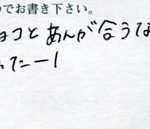 でお書き下さい。
ョコとあんが合うな
った—!